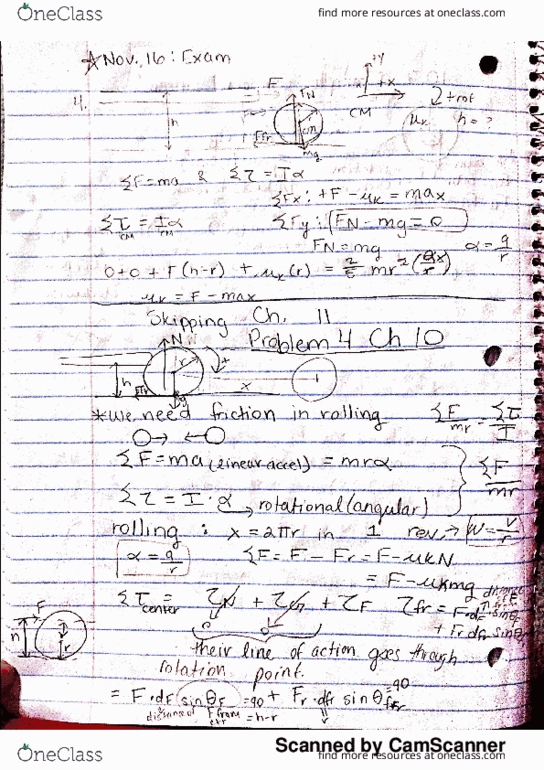 OneClass
find more resources at oneclass.com
☆Nov. 16: Exam
+y
4.
F
FN
+x
+rot
h
r
CM
μk
h = ?
Ffr
mg
ΣF=ma & Στ = Iα
ΣFx: +F - μk = max
Στ = Iα
CM CM
ΣFy: FN - mg = 0
FN = mg
α = a/r
0+0 + F(h-r) + μk(r) = 2/5 mr² (ax/r)
μk = F - max
Skipping Ch. 11
Problem 4 Ch 10
N
r
+
h
x
*we need friction in rolling
ΣF/mr = Στ/I
ΣF = ma (linear accel) = mrα
ΣF/mr
Στ = I · α → rotational (angular)
rolling : x = 2πr in 1 rev, → W = V/r
α = a/r
ΣF = F - Fr = F - μkN
= F - μkmg
F
h
r
Στcenter = τN + τG + τF
τfr = F·dF sinθF
+ Fr dfr sinθfr
their line of action goes through
rotation point.
= F·dF sinθF =90 + Fr·dfr sinθfr =90
distance of F from ctr = h-r
Scanned by CamScanner
OneClass
find more resources at oneclass.com